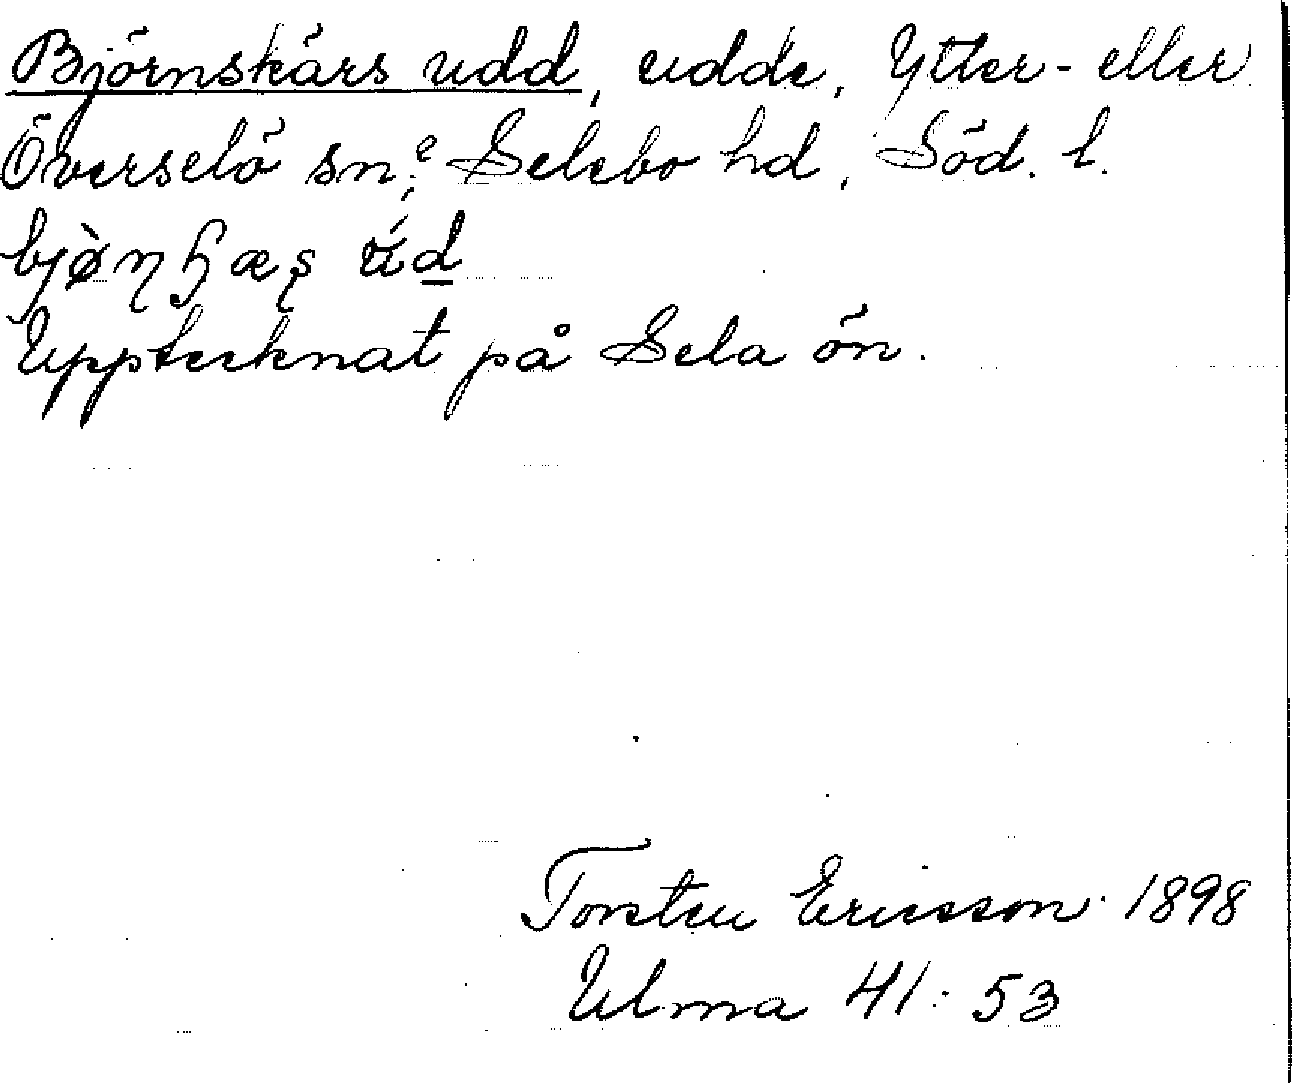 Björnskärs udd, udde, Ytter- eller
Överselö sn?, Selebo hd, Söd. l.
Upptecknat på Sela ön.
Torsten Ericsson 1898
Ulma 41:53